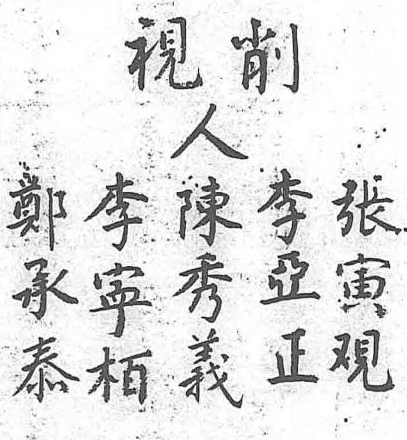 削視
人
張寅观
李亞正
陳秀義
李寧栢
鄭承泰